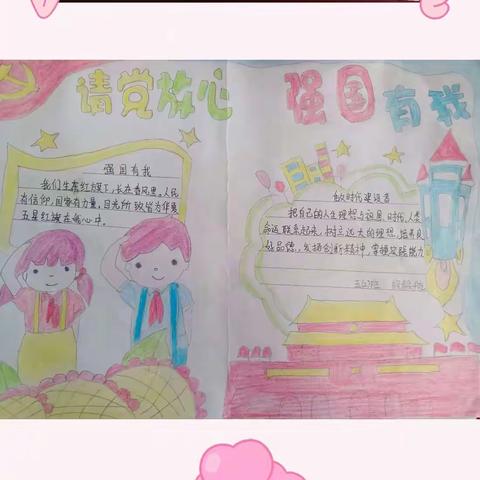 请党放心
强国有我
强国有我
我们生在红旗下，长在春风里。人民
有信仰，国家有力量，目光所致皆为华夏
五星红旗在我心中。
做时代建设者
把自己的人生理想与祖国、时代、人类
命运联系起来，树立远大的理想，培养良
好品德，发扬创新精神，掌握实践能力